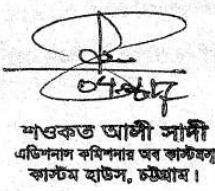 শওকত আলী সাদী
এডিশনাল কমিশনার অব কাস্টমস
কাস্টম হাউস, চট্টগ্রাম।